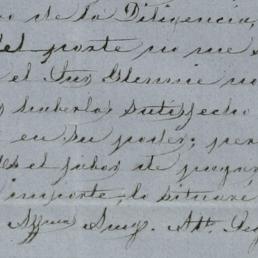 de la Diligencia,
del porte no me
el Sor Glennie no
haberlos satisfecho
en su poder; per
el favor de
importe, lo situaré
Affmo Amigo. Atto